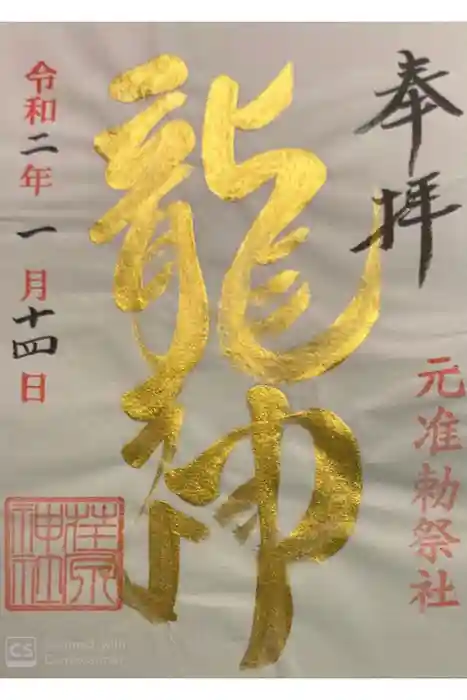 奉拝
元准勅祭社
龍神
令和二年一月十四日
荏原神社
CS Scanned with CamScanner